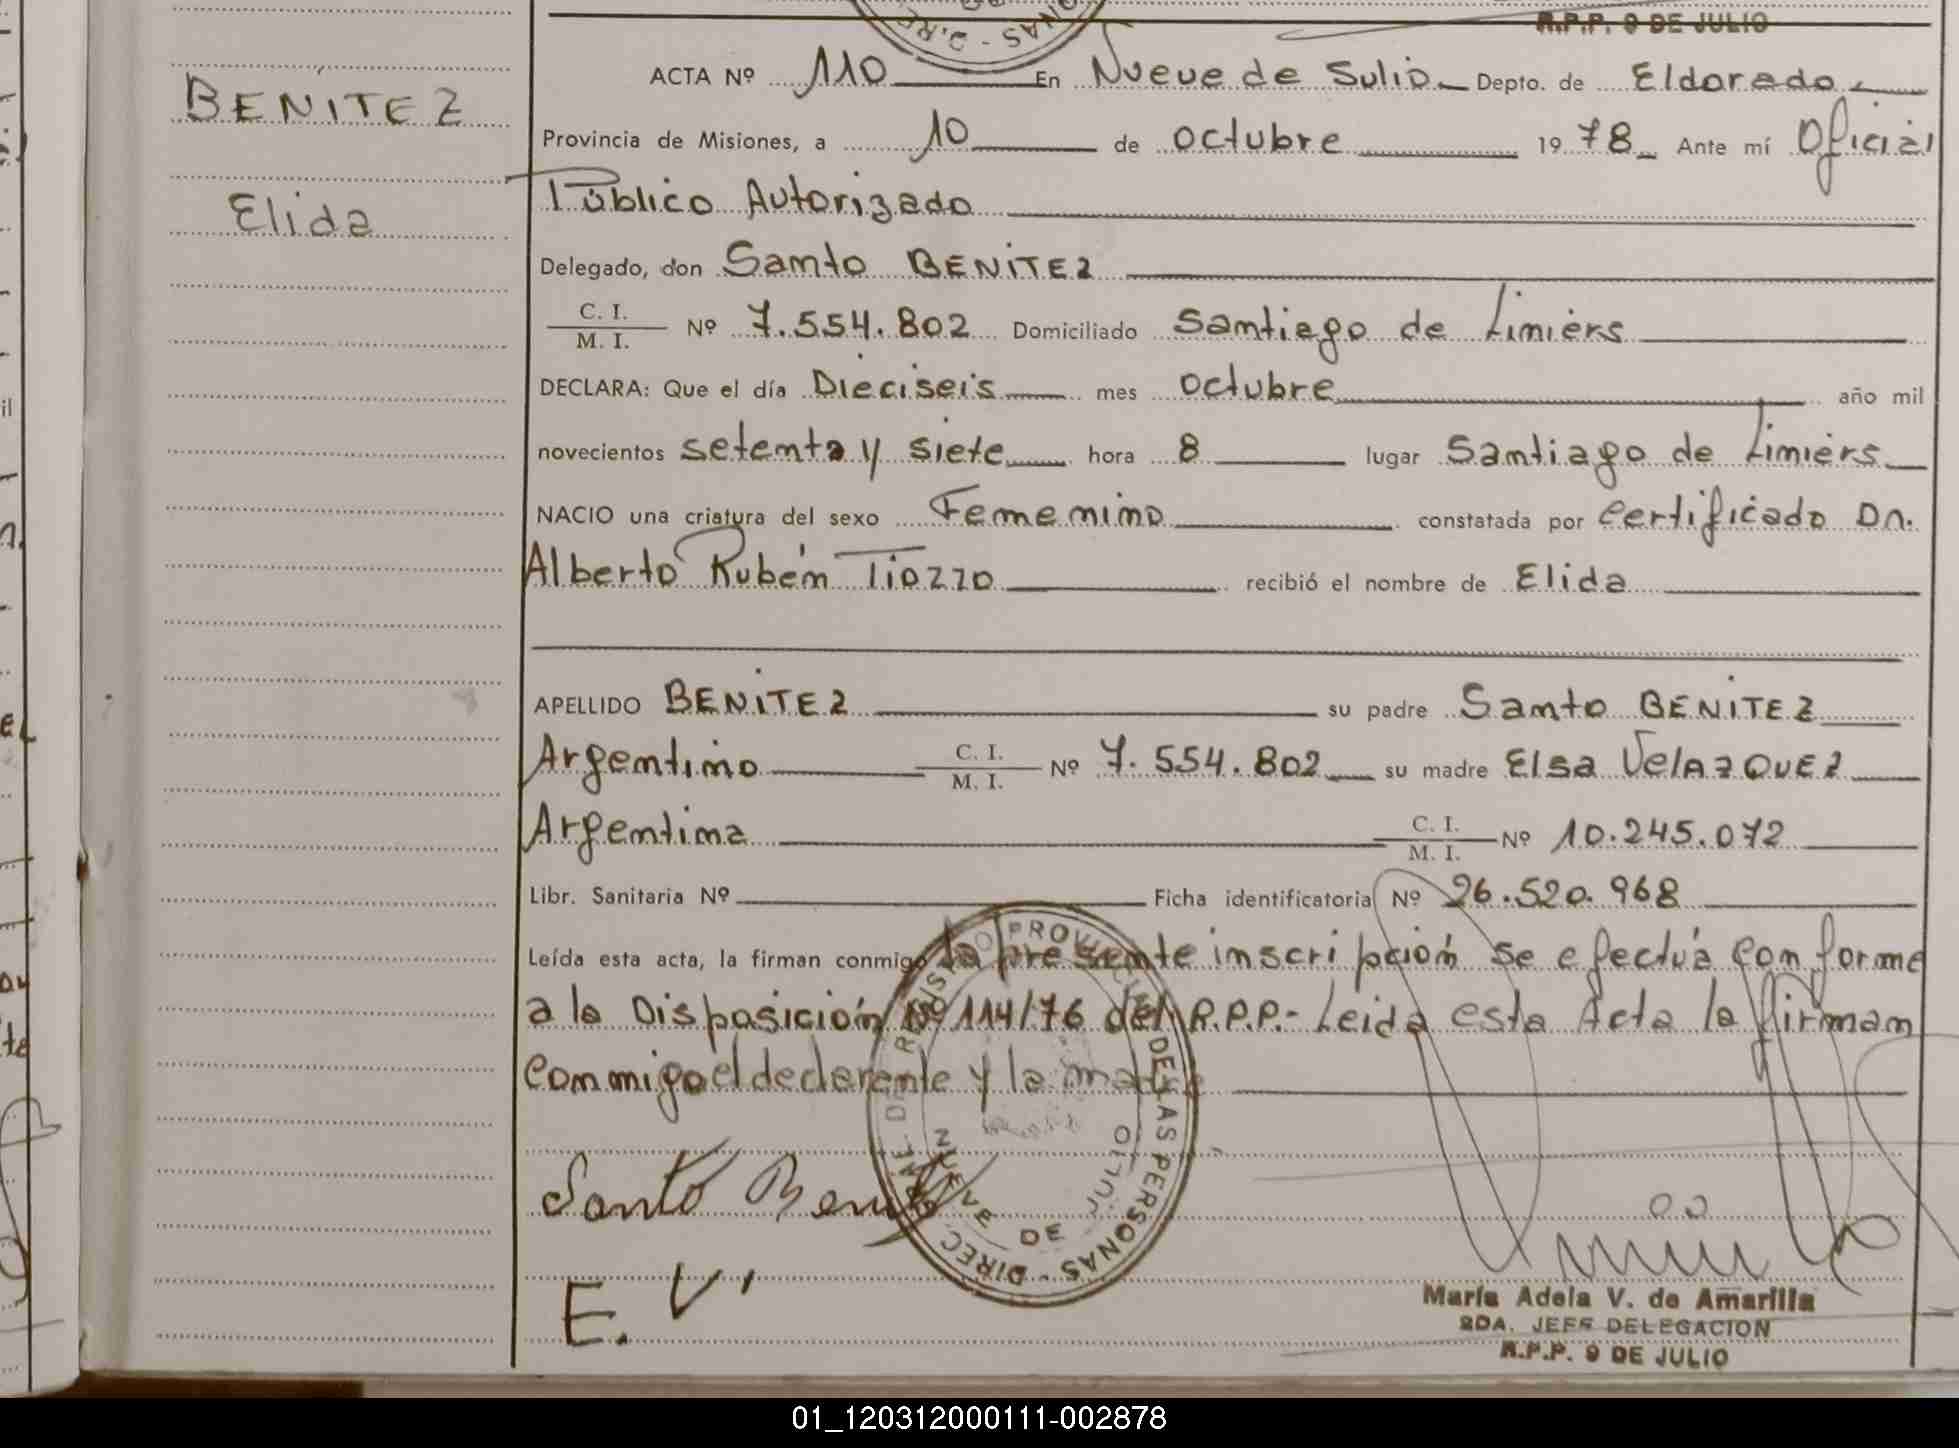 R.P.P. 9 DE JULIO
ACTA Nº 110 En Nueve de Julio Depto. de Eldorado
BENITEZ
Provincia de Misiones, a 10 de octubre 1978 Ante mí Oficial
Elida
Público Autorizado
Delegado, don Santo BENITEZ
C. I.
M. I. Nº 7.554.802 Domiciliado Santiago de Liniers
DECLARA: Que el día Dieciseis mes octubre año mil
novecientos setenta y siete hora 8 lugar Santiago de Liniers
NACIO una criatura del sexo Femenino constatada por certificado Dn.
Alberto Rubén Tiozzo recibió el nombre de Elida
APELLIDO BENITEZ su padre Santo BENITEZ
Argentino C. I.
M. I. Nº 7.554.802 su madre Elsa VelAZQUEZ
Argentina C. I.
M. I. Nº 10.245.072
Libr. Sanitaria Nº Ficha identificatoria Nº 26.520.968
Leída esta acta, la firman conmigo La presente inscripción se efectúa conforme
a la Disposición Nº 114/76 del R.P.P.- Leida esta Acta la firman
conmigo el declarante y la madre
REGISTRO PROVINCIAL DE LAS PERSONAS - DIREC. GRAL. DE
NUEVE DE JULIO
Santo Benitez
E. V.
María Adela V. de Amarilla
2DA. JEFE DELEGACION
R.P.P. 9 DE JULIO
01_120312000111-002878